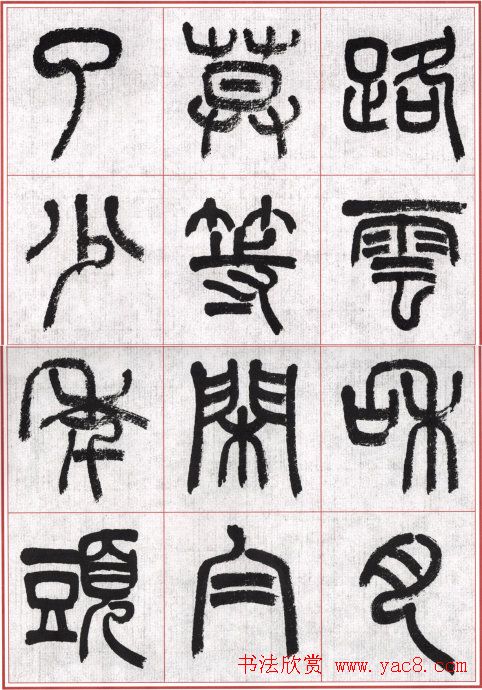 路雲和月
莫等閑白
了少年頭
书法欣赏 www.yac8.com